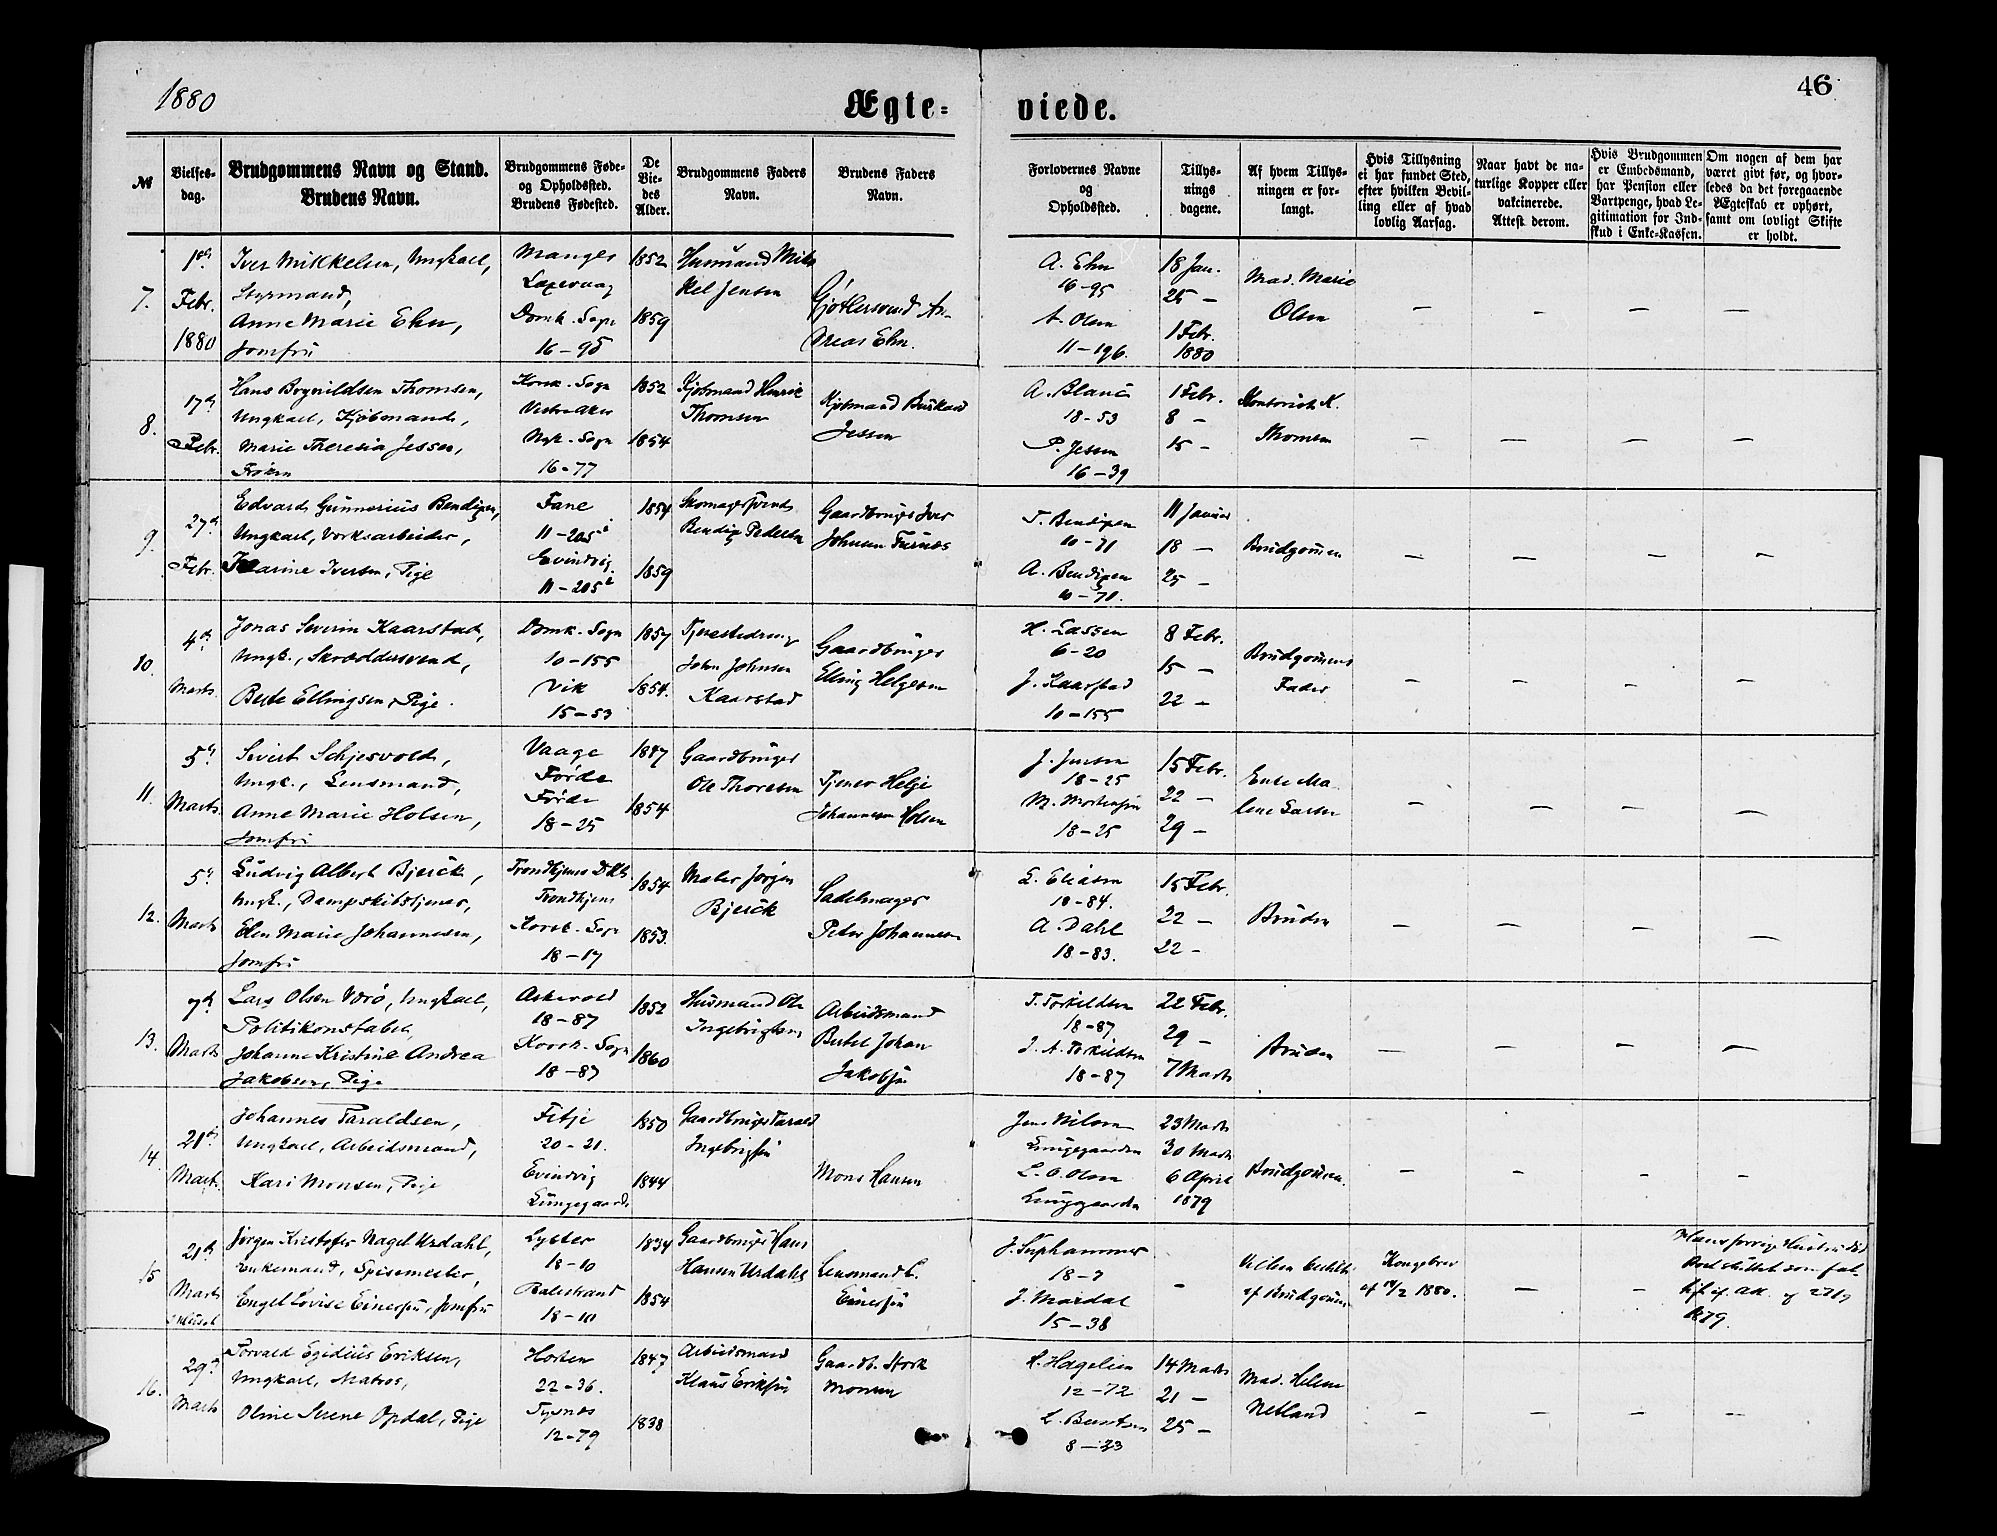 1880
Ægte-
viede.
46
№
Vielses-
dag.
Brudgommens Navn og Stand.
Brudens Navn.
Brudgommens Føde-
og Opholdsfted.
Brudens Fødested.
De
Vie-
des
Alder.
Brudgommens Faders
Navn.
Brudens Faders
Navn.
Forlovernes Navne
og
Opholdssted.
Tillys-
nings
dagene.
Af hvem Tillys-
ningen er for-
langt.
Hvis Tillysning
ei har fundet Sted,
efter hvilken Bevil-
ling eller af hvad
lovlig Aarsag.
Naar havt de na-
turlige Kopper eller
vakcinerede.
Attest derom.
Hvis Brudgommen
er Embedsmand,
har Pension eller
Vartpenge, hvad Le-
gitimation for Ind-
skud i Enke-Kassen.
Om nogen af dem har
været givt før, og hvor-
ledes da det foregaaende
Ægteskab er ophørt,
samt om lovligt Skifte
er holdt.
7.
1ste
Febr.
1880
Iver Mikkelsen, Ungkarl,
Styrmand,
Anne Marie Ehn,
Jomfru
Manger
Laxevaag
Domk. Sogn
16-95
1852
1859
Husmand Mik-
kel Jensen
Gjørtlersvend An-
dreas Ehn.
A. Ehn
16-95
A. Olsen
11-196.
18 Jan.
25 -
1 Febr.
1880
Mad. Marie
Olsen
- - - -
8.
17de
Febr.
Hans Boynildsen Thomsen,
Ungkarl, Kjøbmand,
Marie Theresia Jessen,
Frøken
Korsk. Sogn
Vestre Aker
Nyk. Sogn
16-77
1852
1854
Kjøbmand Henrik
Thomsen
Kjøbmand Burkard
Jessen
A. Blauc
18-53
P. Jessen
16-39
1 Febr.
8 -
15 -
Kontorist K.
Thomsen
- - - -
9.
27de
Febr.
Edvard Gunnerius Bendixen,
Ungkarl, Værksarbeider,
Karine Iversen, Pige
Fane
11-205
Evindvig
11-205
1854
1859
Skomagersvend
Bendix Pedersen
Gaardbruger Iver
Johnsen Furnæs
T. Bendixen
10-71
A. Bendixen
10-71.
11 Januar
18 -
25 -
Brudgommen
- - - -
10.
4de
Marts
Jonas Severin Kaarstad,
Ungk., Skræddersvend,
Berte Ellingsen, Pige.
Domk. Sogn
10-155
Vik
15-53
1857
1854.
John Johnsen
Kaarstad
Gaardbruger
Elling Helgesen
H. Lassen
6-20
J. Kaarstad
10-155
8 Febr.
15 -
22 -
Brudgommens
Fader
- - - -
11.
5te
Marts
Sivert Schjesvold,
Ungk., Lensmand,
Anne Marie Holsen,
Jomfru
Vaage
Førde
Førde
18-25
1847
1854
Gaardbruger
Ole Thoresen
Tjener Helje
Johannesen Holsen
J. Jensen
18-25
M. Mortensen
18-25
15 Febr.
22 -
29 -
Enke Ma-
lene Larsen
- - - -
12.
5te
Marts
Ludvig Albert Bjerck,
Ungk., Dampskibstjener,
Elen Marie Johannesen,
Jomfru
Trondhjems Dkk.
Trondhjem
Korsk. Sogn
18-17
1854
1853.
Maler Jørgen
Bjerck
Sadelmager
Peter Johannesen
E. Eliasen
10-84.
A. Dahl
18-83.
15 Febr.
22 -
22 -
Bruden
- - - -
13.
7de
Marts
Lars Olsen Værø, Ungkarl,
Politikonstabel,
Johanne Kristine Andrea
Jakobsen, Pige
Askevold
18-87
Korsk. Sogn
18-87
1852
1860
Husmand Ole
Ingebrigtsen
Arbeidsmand
Bertel Johan
Jakobsen
T. Torkildsen
18-87
J. A. Torkildsen
18-87
22 Febr.
29 -
7 Marts
Bruden
- - - -
14.
21de
Marts
Johannes Taraldsen,
Ungkarl, Arbeidsmand,
Kari Monsen, Pige
Fitje
20-21.
Evindvig
Lungegaard.
1850
1844
Gaardbruger Tarald
Ingebrigtsen
Mons Hansen
Jens Nilsen
Lungegaarden
L. O. Olsen
Lunggaarden
23 Marts
30 Marts
6 April
1879
Brudgommen.
- - - -
15
21de
Marts
Jørgen Kristofer Nagel Urdahl,
Enkemand, Spisemester,
Engel Lovise Einersen, Jomfru
Lyster
18-10
Balestrand
18-10
1834
1854
Gaardbruger Hans
Hansen Urdahl
Lensmand C.
Einersen
18-7
J. Mardal
15-38
-
Vielsen bestilt
af Brudgommen
Kongebrev
af 14/2 1880.
- -
Hans forrige Hustru død
1879.
16.
29de
Marts
Torvald Egidius Eriksen,
Ungkarl, Matros,
Oline Serene Opdal, Pige
Horten
22-36.
Tysnæs
12-79
1847
1838
Arbeidsmand
Klaus Eriksen
Gaardb. Stork
Monsen
H. Hagelien
12-72
L. Berntsen
8-23
14 Marts
21 -
25 -
Mad. Helene
Netland
- - - -